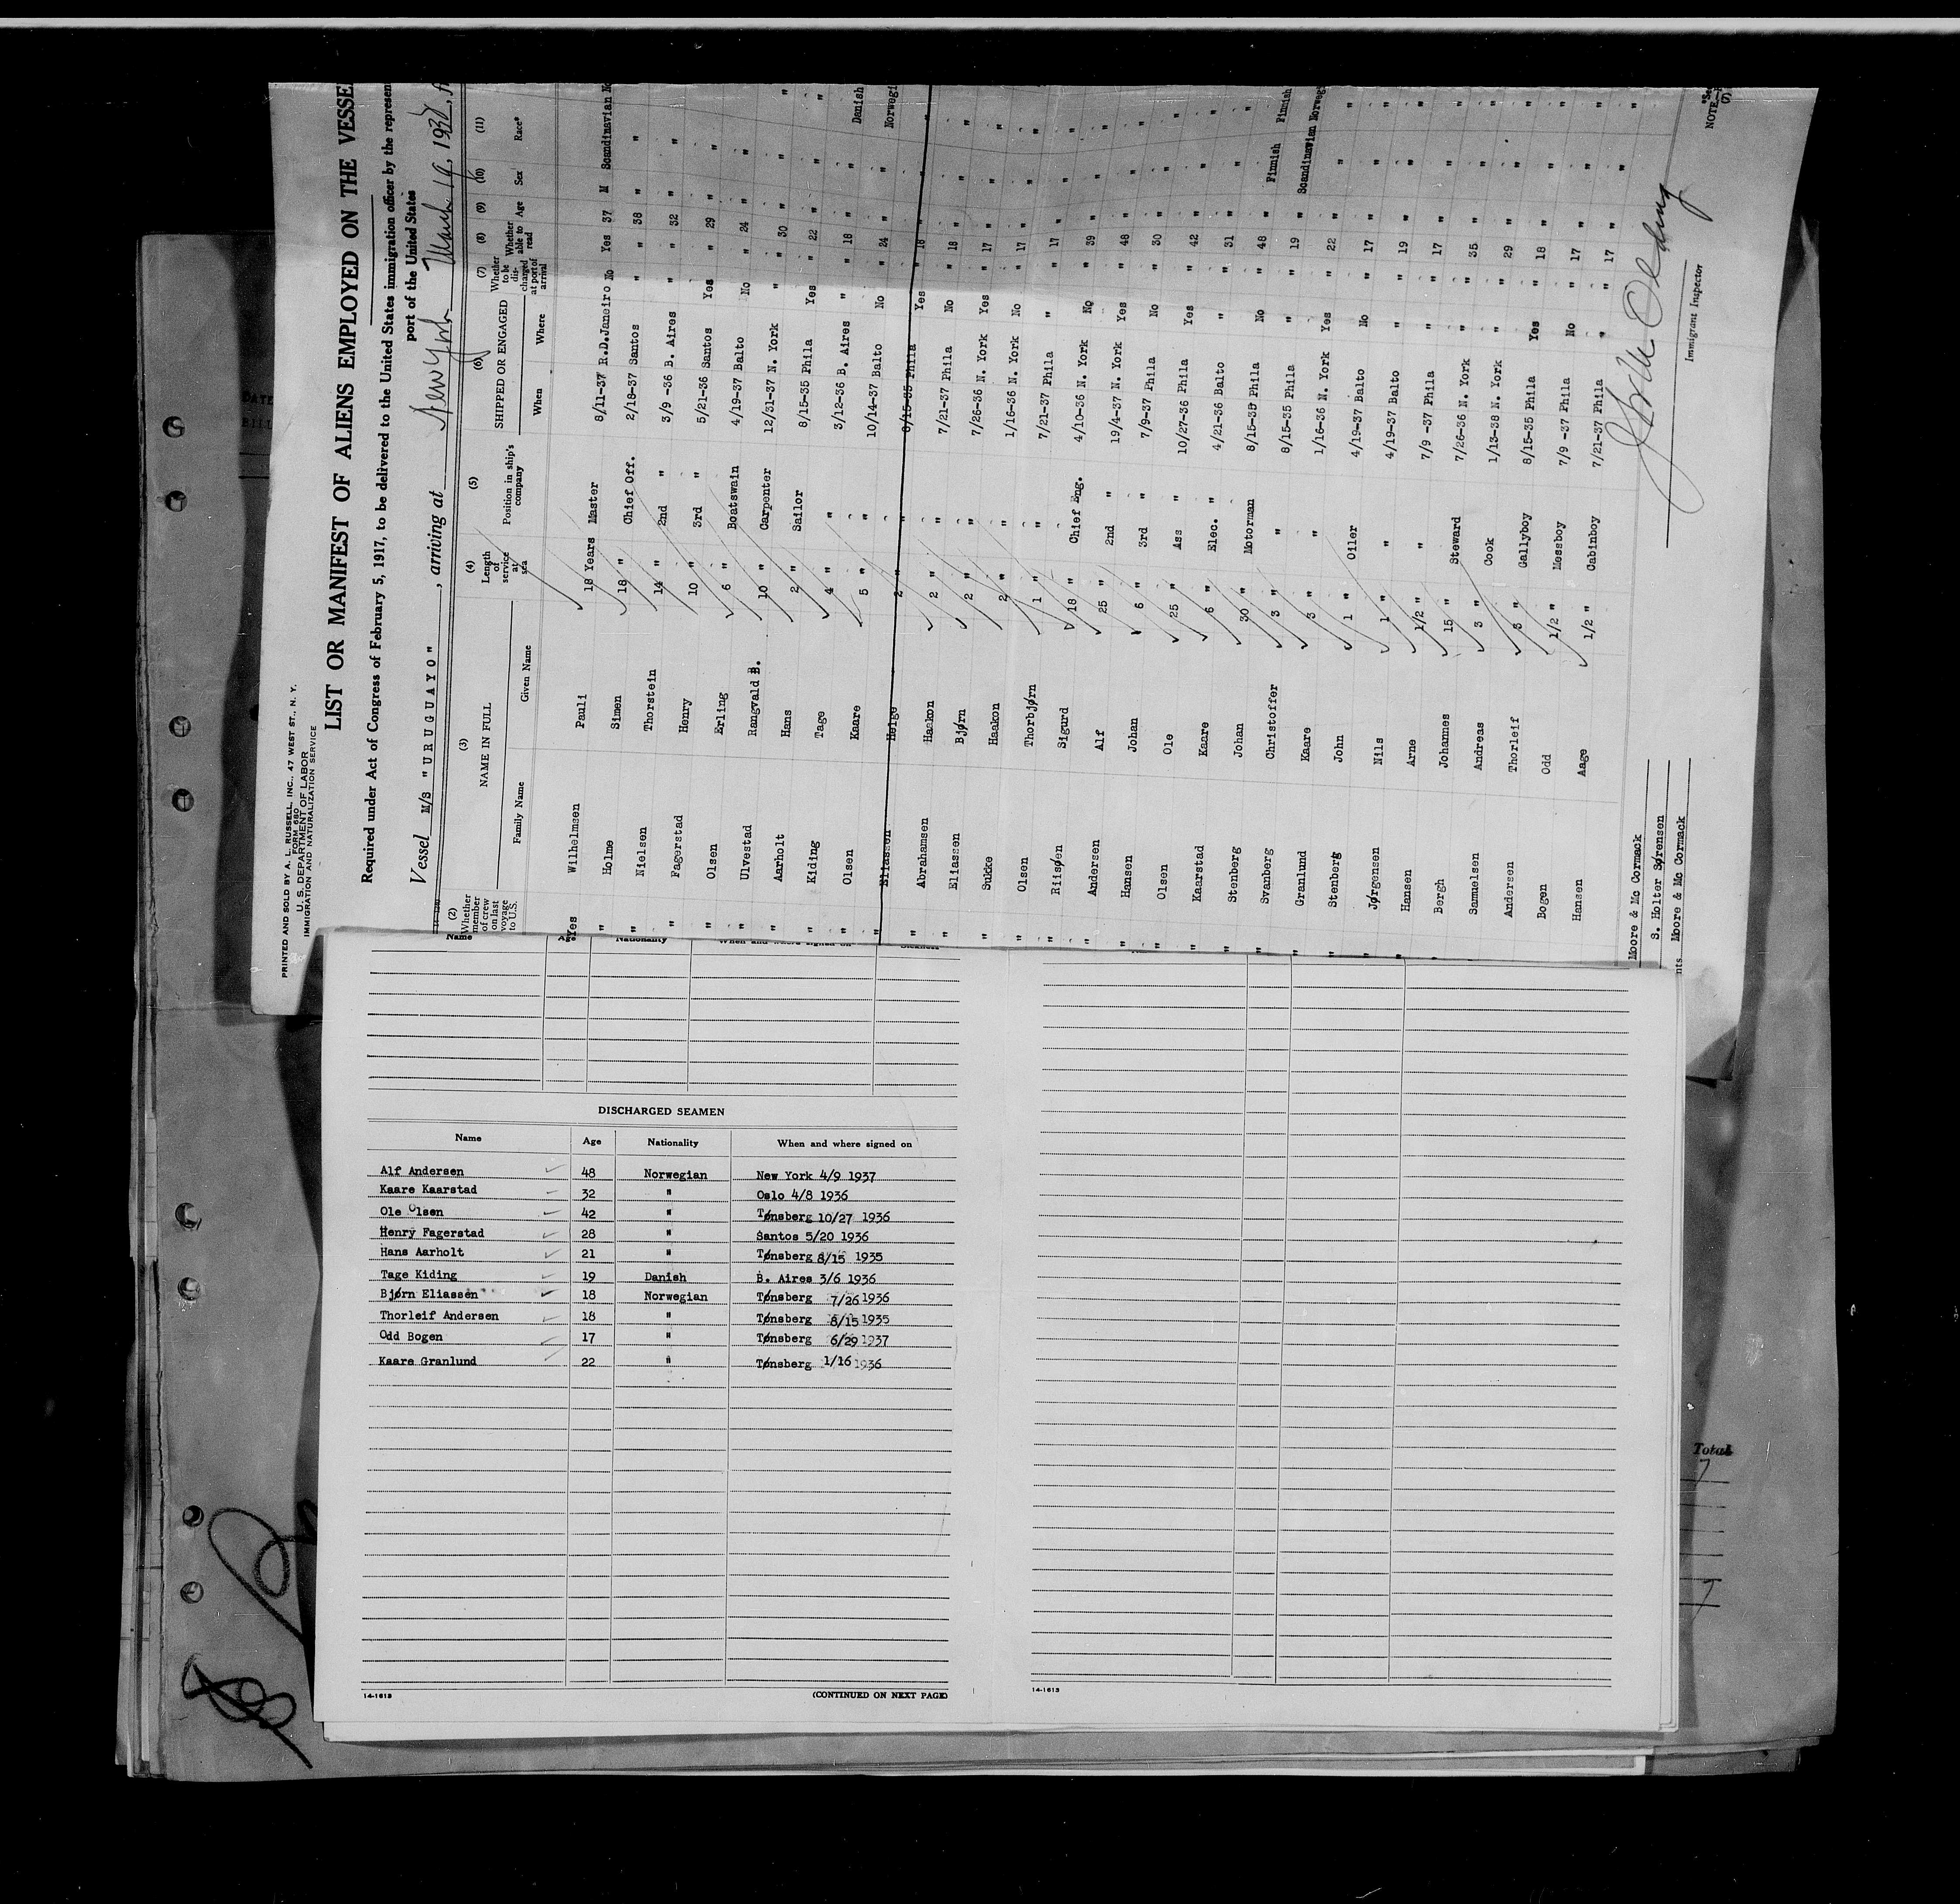 PRINTED AND SOLD BY A. L. RUSSELL, INC., 47 WEST ST., N. Y.
FORM 680
U. S. DEPARTMENT OF LABOR
IMMIGRATION AND NATURALIZATION SERVICE
LIST OR MANIFEST OF ALIENS EMPLOYED ON THE VESSE
Required under Act of Congress of February 5, 1917, to be delivered to the United States immigration officer by the represen
port of the United States
Vessel M/S "URUGUAYO", arriving at New York March 19, 1938,
(2) (3) (4) (5) (6) (7) (8) (9) (10) (11)
Whether member of crew on last voyage to U.S. NAME IN FULL Length of service at sea Position in ship's company SHIPPED OR ENGAGED Whether to be discharged at port of arrival Whether able to read Age Sex Race*
Family Name Given Name When Where
Yes Wilhelmsen Pauli 18 Years Master 8/11-37 R.D.Janeiro No Yes 37 M Scandinavian No
" Holme Simen 18 " Chief Off. 2/18-37 Santos " " 38 " "
" Nielsen Thorstein 14 " 2nd " 3/9 -36 B. Aires " " 32 " "
" Fagerstad Henry 10 " 3rd " 5/21-36 Santos Yes " 29 " "
" Olsen Erling 6 " Boatswain 4/19-37 Balto No " 24 " "
" Ulvestad Rangvald B. 10 " Carpenter 12/31-37 N. York " " 30 " " "
" Aarholt Hans 2 " Sailor 8/15-35 Phila Yes " 22 " " "
" Kiding Tage 4 " " 3/12-36 B. Aires " " 18 " " Danish
" Olsen Kaare 5 " " 10/14-37 Balto No " 24 " " Norwegi
" Eliassen Helge 2 " " 8/15-35 Phila Yes " 18 " " "
" Abrahamsen Haakon 2 " " 7/21-37 Phila No " 18 " " "
" Eliassen Bjørn 2 " " 7/26-36 N. York Yes " 17 " " "
" Sukke Haakon 2 " " 1/16-36 N. York No " 17 " " "
" Olsen Thorbjørn 1 " " 7/21-37 Phila " " 17 " " "
" Riisøen Sigurd 18 " Chief Eng. 4/10-36 N. York No " 39 " " "
" Andersen Alf 25 " 2nd " 19/4-37 N. York Yes " 48 " " "
" Hansen Johan 6 " 3rd " 7/9-37 Phila No " 30 " " "
" Olsen Ole 25 " Ass " 10/27-36 Phila Yes " 42 " " "
" Kaarstad Kaare 6 " Elec. " 4/21-36 Balto " " 31 " " "
" Stenberg Johan 30 " Motorman 8/15-35 Phila No " 48 " Finnish Finnish
" Svanberg Christoffer 3 " " 8/15-35 Phila " " 19 " Scandinavian Norwegi
" Granlund Kaare 3 " " 1/16-36 N. York Yes " 22 " " "
" Stenberg John 1 " Oiler 4/19-37 Balto No " 17 " " "
" Jørgensen Nils 1 " " 4/19-37 Balto " " 19 " " "
" Hansen Arne 1/2 " " 7/9 -37 Phila " " 17 " " "
Bergh Johannes 15 " Steward 7/26-36 N. York " " 35 " " "
Samuelsen Andreas 3 " Cook 1/13-38 N. York " " 29 " " "
Andersen Thorleif 3 " Gallyboy 8/15-35 Phila Yes " 18 " " "
Bogen Odd 1/2 " Messboy 7/9 -37 Phila No " 17 " " "
Hansen Aage 1/2 " Cabinboy 7/21-37 Phila " " 17 " " "
Moore & Mc Cormack
S. Holter Sørensen
nts Moore & Mc Cormack
Immigrant Inspector
*See
NOTE
Name Age Nationality When and where signed on
DISCHARGED SEAMEN
Name Age Nationality When and where signed on
Alf Andersen 48 Norwegian New York 4/9 1937
Kaare Kaarstad 32 " Oslo 4/8 1936
Ole Olsen 42 " Tønsberg 10/27 1936
Henry Fagerstad 28 " Santos 5/20 1936
Hans Aarholt 21 " Tønsberg 8/15 1935
Tage Kiding 19 Danish B. Aires 3/6 1936
Bjørn Eliassen 18 Norwegian Tønsberg 7/26 1936
Thorleif Andersen 18 " Tønsberg 8/15 1935
Odd Bogen 17 " Tønsberg 6/29 1937
Kaare Granlund 22 " Tønsberg 1/16 1936
14-1613 (CONTINUED ON NEXT PAGE)
14-1613
Total
7
7